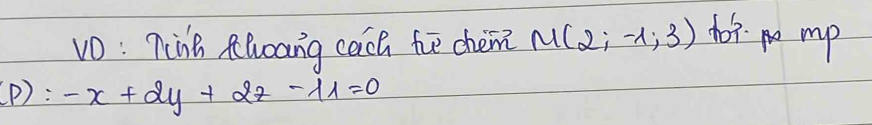 VD : Tính khoảng cách từ điểm M(2; -1; 3) tới mp
(P) : -x + 2y + 2z - 11 = 0